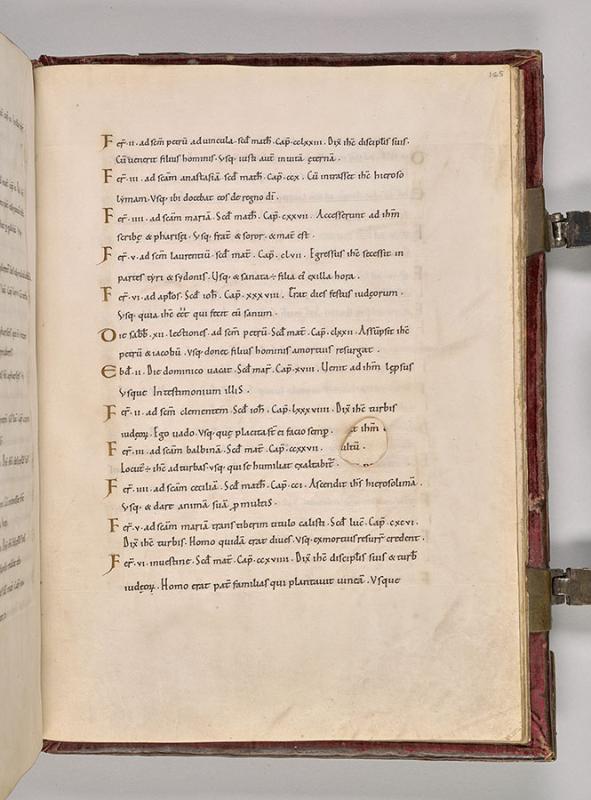 165
Fer̄·ii·ad sc̄m petrū ad uincula·scd̄ math̄·Cap̄·cclxxiii·Dix̄ ihc̄ discipłis suis·
Cū uenerit filius hominis·Usq; iusti aut̄ in uitā ęternā·
Fer̄·iii·ad scām anastasiā scd̄ math̄·Cap̄·ccx·Cū intrasset ihc̄ hieroso
lymam·Usq; ibi docebat eos de regno dī·
Fer̄·iiii·ad scām mariā·Scd̄ math̄·Cap̄·cxxvii·Accesserunt ad ihm̄
scribę & pharisei·Usq; frat̄ & soror·& mat̄ est·
Fer̄·v·ad sc̄m laurentiū·scd̄ mat̄·Cap̄·clvii·Egressus ihc̄ secessit in
partes tyri & sydonis·Usq; & sanata÷ filia ei̓ ex illa hora·
Fer̄·vi·ad apłos·Scd̄ ioh̄·Cap̄·xxxviii·Erat dies festus iudęorum·
Usq; quia ihc̄ eēt qui fecit eū sanum·
Die sabb̄·xii·lectiones·ad sc̄m petrū·Scd̄ mat̄·Cap̄·clxxii·Assūpsit ihc̄
petrū & iacobū·Usq; donec filius hominis a mortuis resurgat·
Ebd̄·ii·Die dominico uacat·Scd̄ mar̄·Cap̄·xviii·Uenit ad ihm̄ lepsus
Usque In testimonium illis·
Fer̄·ii·ad sc̄m clementem·Scd̄ ioh̄·Cap̄·lxxxviiii·Dix̄ ihc̄ turbis
iudęoꝝ·Ego uado·Usq; quę placita st̄ ei facio semp̄·
Fer̄·iii·ad scām balbinā·Scd̄ mat̄·Cap̄·ccxxvii·
Locut̓÷ ihc̄ ad turbas·usq; qui se humiliat exaltabit̄·
Fer̄·iiii·ad scām ceciliā·Scd̄ math̄·Cap̄·cci·Ascendit ihs̄ hierosolimā·
Usq; & dare animā suā ꝓ multis·
Fer̄·v·ad scām mariā transtiberim titulo calisti·Scd̄ luc̄·Cap̄·cxcvi·
Dix̄ ihc̄ turbis·Homo quidā erat diues·Usq; ex mortuis resurr̄ credent·
Fer̄·vi·in uestine·Scd̄ mat̄·Cap̄·ccxviiii·Dix̄ ihc̄ discipłis suis & turb̄
iudęoꝝ·Homo erat pat̄ familias qui plantauit uineā·Usque